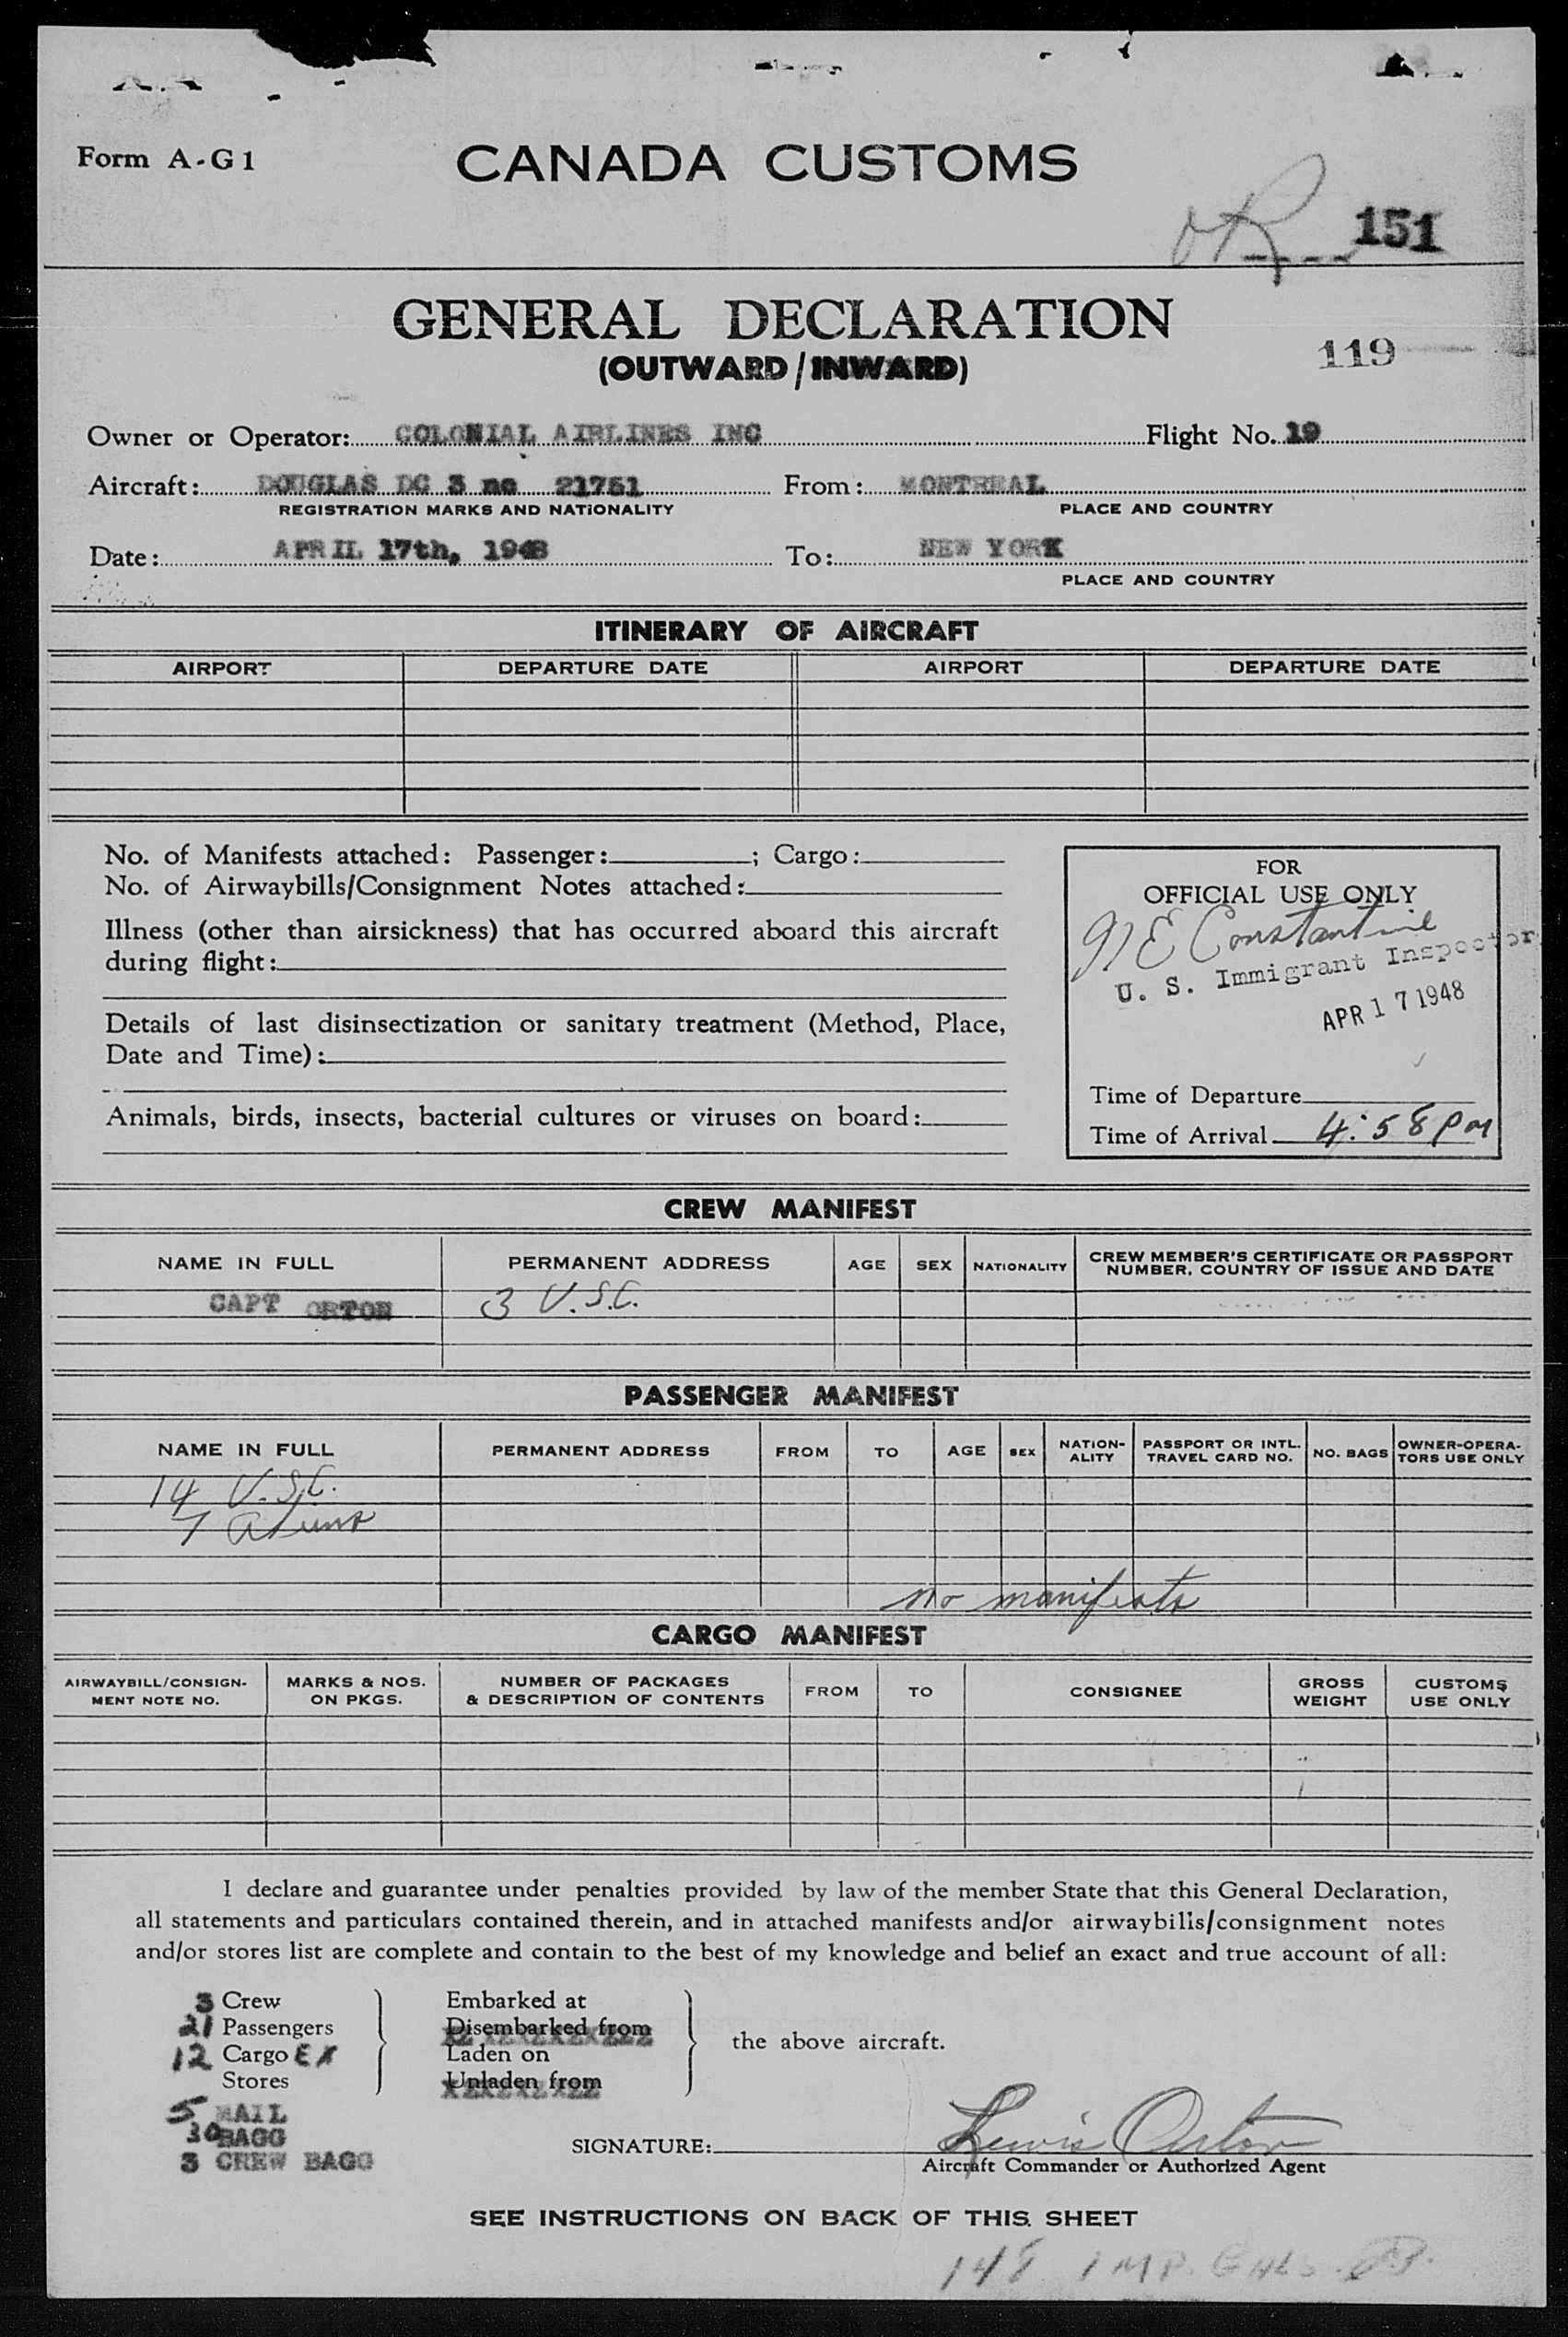 Form A-G1
CANADA CUSTOMS
OK
151
GENERAL DECLARATION
(OUTWARD/INWARD)
119
Owner or Operator: COLONIAL AIRLINES INC Flight No. 19
Aircraft: DOUGLAS DC 3 nc 21751 From: MONTREAL
REGISTRATION MARKS AND NATIONALITY PLACE AND COUNTRY
Date: APRIL 17th, 1948 To: NEW YORK
PLACE AND COUNTRY
ITINERARY OF AIRCRAFT
AIRPORT DEPARTURE DATE AIRPORT DEPARTURE DATE
No. of Manifests attached: Passenger: ; Cargo:
No. of Airwaybills/Consignment Notes attached:
Illness (other than airsickness) that has occurred aboard this aircraft
during flight:
Details of last disinsectization or sanitary treatment (Method, Place,
Date and Time):
Animals, birds, insects, bacterial cultures or viruses on board:
FOR
OFFICIAL USE ONLY
N E Constantine
U. S. Immigrant Inspector
APR 17 1948
Time of Departure
Time of Arrival 4:58 pm
CREW MANIFEST
NAME IN FULL PERMANENT ADDRESS AGE SEX NATIONALITY CREW MEMBER'S CERTIFICATE OR PASSPORT
NUMBER, COUNTRY OF ISSUE AND DATE
CAPT ORTON 3 U.S.C.
PASSENGER MANIFEST
NAME IN FULL PERMANENT ADDRESS FROM TO AGE SEX NATION-
ALITY PASSPORT OR INTL.
TRAVEL CARD NO. NO. BAGS OWNER-OPERA-
TORS USE ONLY
14 U.S.C.
7 aliens
no manifests
CARGO MANIFEST
AIRWAYBILL/CONSIGN-
MENT NOTE NO. MARKS & NOS.
ON PKGS. NUMBER OF PACKAGES
& DESCRIPTION OF CONTENTS FROM TO CONSIGNEE GROSS
WEIGHT CUSTOMS
USE ONLY
I declare and guarantee under penalties provided by law of the member State that this General Declaration,
all statements and particulars contained therein, and in attached manifests and/or airwaybills/consignment notes
and/or stores list are complete and contain to the best of my knowledge and belief an exact and true account of all:
3 Crew Embarked at
21 Passengers Disembarked from
12 Cargo EX Laden on
Stores Unladen from
the above aircraft.
5 MAIL
30 BAGG
3 CREW BAGG
SIGNATURE: Lewis Orton
Aircraft Commander or Authorized Agent
SEE INSTRUCTIONS ON BACK OF THIS SHEET
148 IMP. GALS.